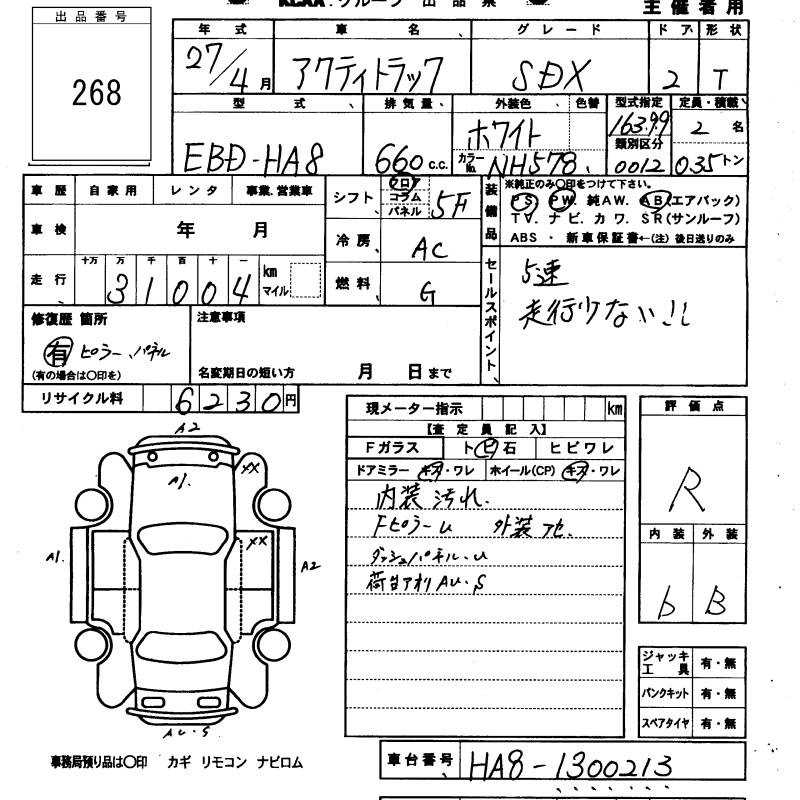 KCAA.グループ 出品票
主催者用
出品番号
268
年式 車名 グレード ドア 形状
27/4月 アクティトラック SDX 2 T
型式 排気量 外装色 色替 型式指定 定員・積載
EBD-HA8 660c.c. ホワイト カラーNo. NH578 16399 類別区分 0012 2名 035トン
車歴 自家用 レンタ 事業.営業車
車検 年 月
走行 十万 万 千 百 十 一 km マイル
31004
シフト フロ コラム パネル 5F
冷房 AC
燃料 G
装備品
※純正のみ○印をつけて下さい。
PS PW. 純AW. AB(エアバック)
TV. ナビ. カワ. SR(サンルーフ)
ABS・新車保証書←(注)後日送りのみ
セールスポイント
5速
走行少ない!!
修復歴 箇所
有 ピラー、パネル
(有の場合は○印を)
注意事項
名変期日の短い方 月 日まで
リサイクル料 6230円
現メーター指示 km
【査定員記入】
Fガラス トビ石 ヒビワレ
ドアミラー キズ・ワレ ホイール(CP) キズ・ワレ
内装汚れ.
Fピラーu 外装アセ.
ダッシュパネル・u
荷台アオリAU・S
評価点
R
内装 外装
b B
A2
A1.
XX
XX
A1.
A2
AU・S
ジャッキ工具 有・無
パンクキット 有・無
スペアタイヤ 有・無
事務局預り品は○印 カギ リモコン ナビロム
車台番号 HA8-1300213